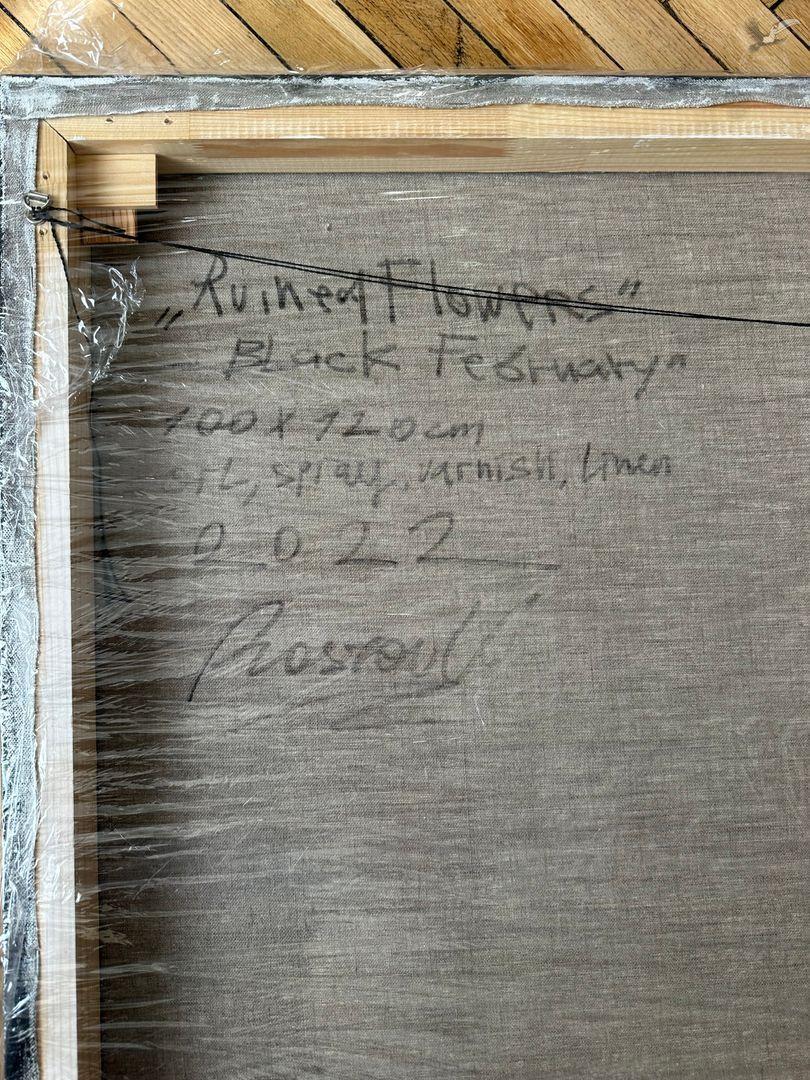 „Ruined Flowers"
Black February"
100 x 120 cm
oil, spray, varnish, Linen
2022